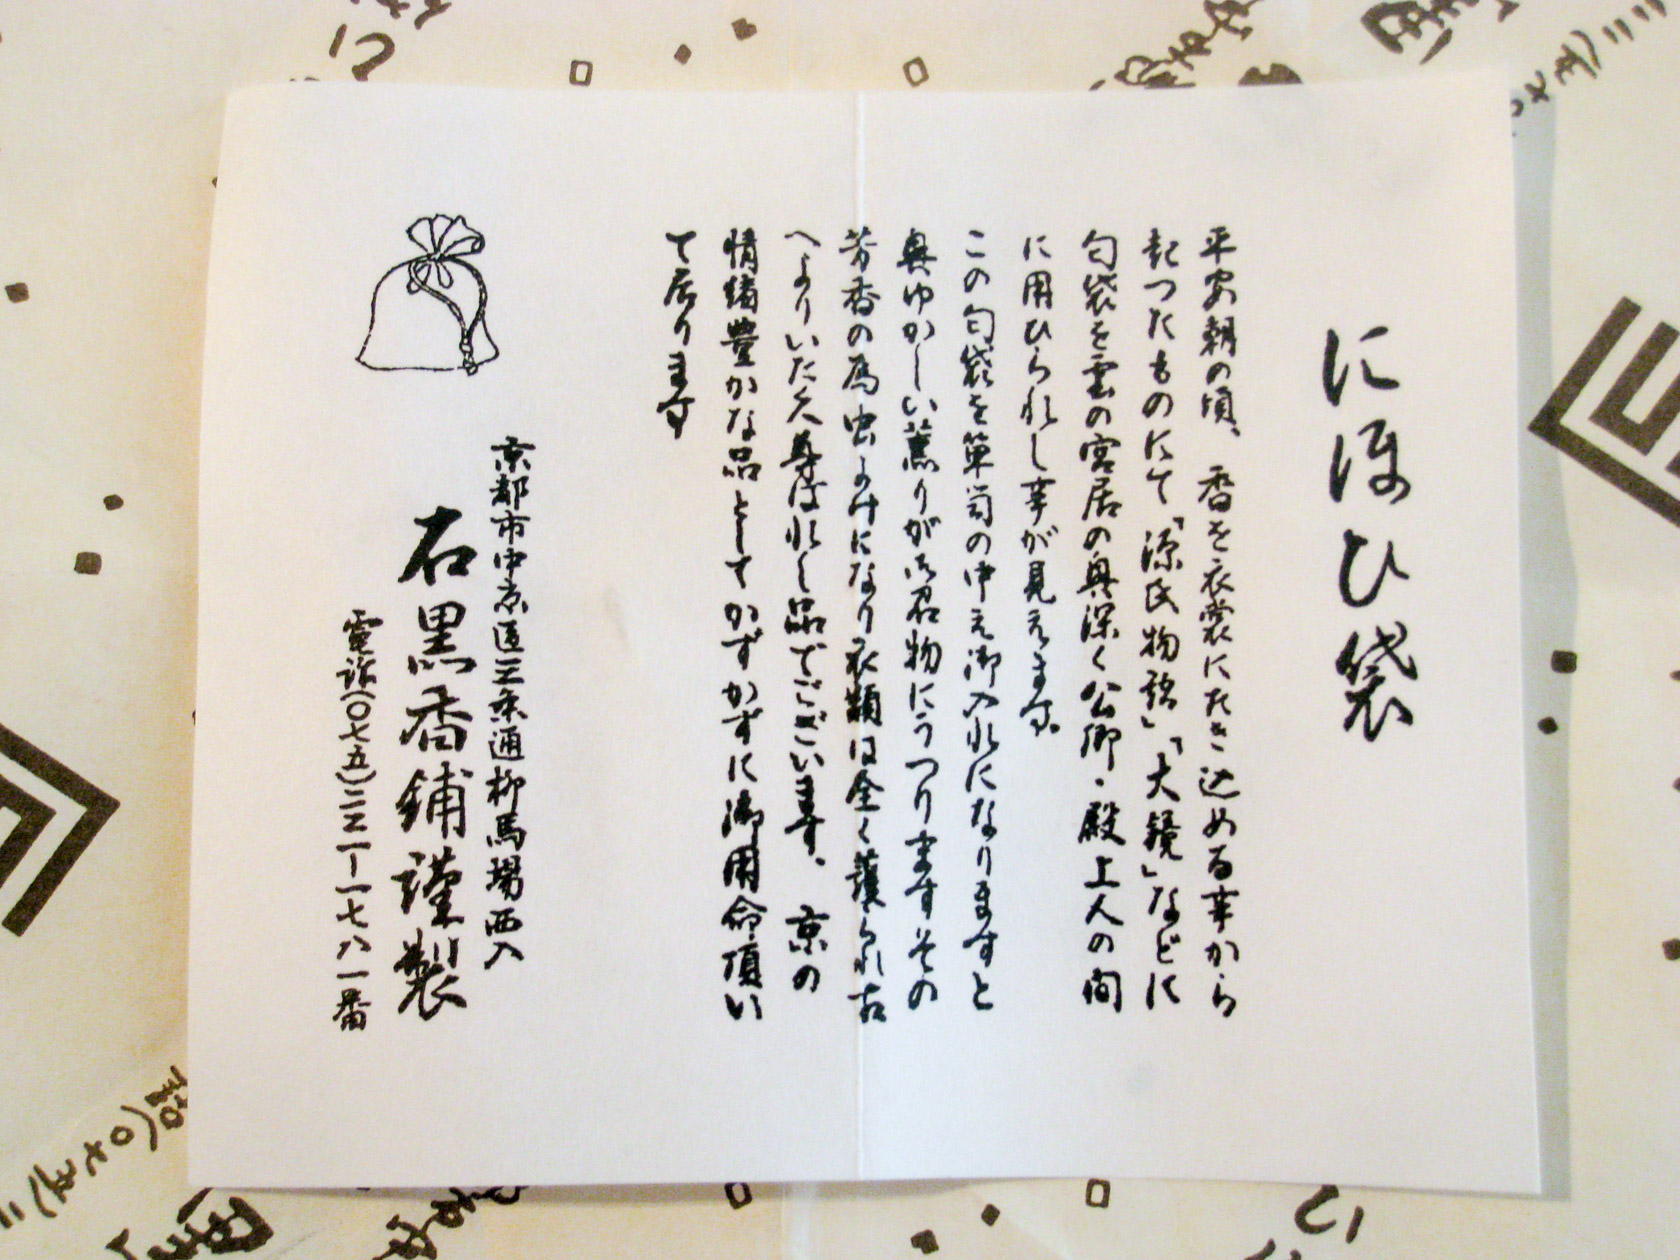 にほひ袋
平安朝の頃、香を衣裳にたき込める事から
起つたものにて「源氏物語」「大鏡」などに
匂袋を雲の宮居の奥深く公卿・殿上人の間
に用ひられし事が見えます。
この匂袋を箪笥の中え御入れになりますと
奥ゆかしい薫りがお召物にうつりますその
芳香の為虫よけになり衣類は全く護られ古
へよりいたく尊ばれし品でございます。京の
情緒豊かな品としてかずかずに御用命頂い
て居ります
京都市中京区三条通柳馬場西入
石黒香鋪謹製
電話(〇七五)二二一ー一七八一番